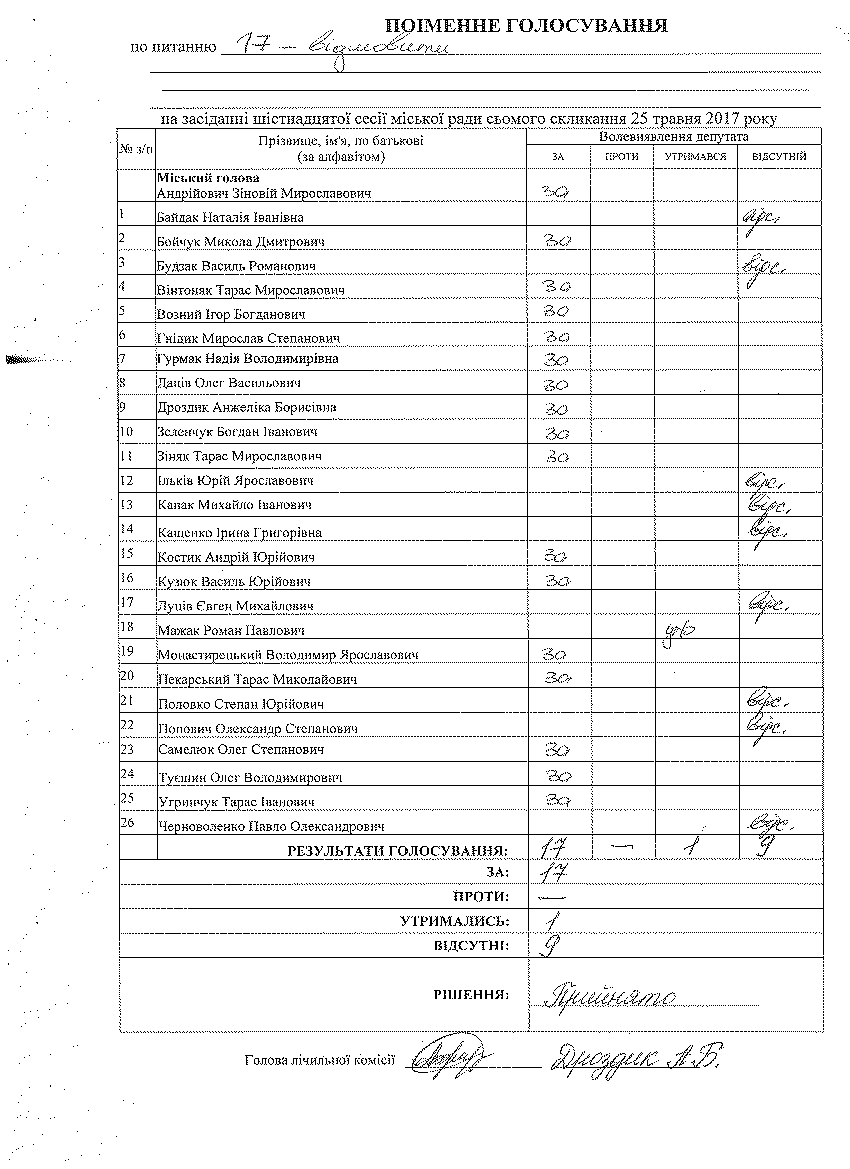 ПОІМЕННЕ ГОЛОСУВАННЯ
по питанню 17 — відмовити
на засіданні шістнадцятої сесії міської ради сьомого скликання 25 травня 2017 року
№ з/п Прізвище, ім'я, по батькові (за алфавітом) Волевиявлення депутата
ЗА ПРОТИ УТРИМАВСЯ ВІДСУТНІЙ
Міський голова
Андрійович Зіновій Мирославович за
1 Байдак Наталія Іванівна відс.
2 Бойчук Микола Дмитрович за
3 Будзак Василь Романович відс.
4 Вінтоняк Тарас Мирославович за
5 Возний Ігор Богданович за
6 Гнідик Мирослав Степанович за
7 Гурмак Надія Володимирівна за
8 Даців Олег Васильович за
9 Дроздик Анжеліка Борисівна за
10 Зеленчук Богдан Іванович за
11 Зіняк Тарас Мирославович за
12 Ільків Юрій Ярославович відс.
13 Капак Михайло Іванович відс.
14 Кащенко Ірина Григорівна відс.
15 Костик Андрій Юрійович за
16 Кузюк Василь Юрійович за
17 Луців Євген Михайлович відс.
18 Мажак Роман Павлович
19 Монастирецький Володимир Ярославович за
20 Пекарський Тарас Миколайович за
21 Половко Степан Юрійович відс.
22 Попович Олександр Степанович відс.
23 Самелюк Олег Степанович за
24 Туєшин Олег Володимирович за
25 Угринчук Тарас Іванович за
26 Черноволенко Павло Олександрович відс.
РЕЗУЛЬТАТИ ГОЛОСУВАННЯ: 17 — 1 9
ЗА: 17
ПРОТИ: —
УТРИМАЛИСЬ: 1
ВІДСУТНІ: 9
РІШЕННЯ: Прийнято
Голова лічильної комісії Дроздик А.Б.